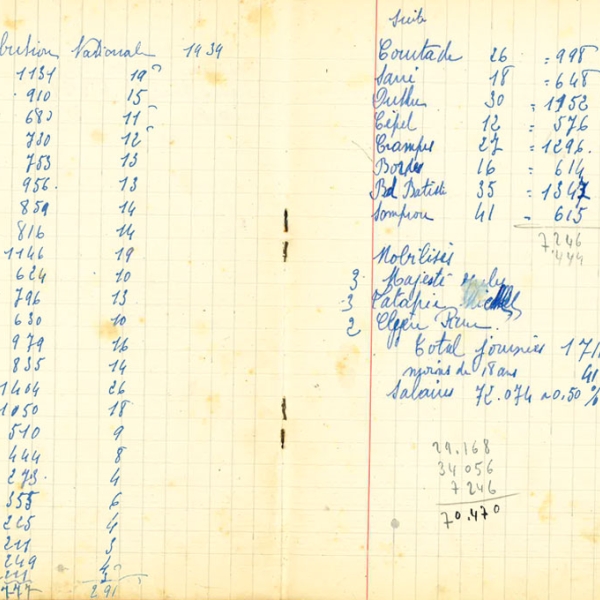 bution Nationale 1939
1131 19
910 15
683 11
730 12
753 13
956. 13
859 14
816 14
1146 19
624 10
796 13
630 10
979 16
835 14
1404 26
1050 18
510 9
444 8
273. 4
355 6
225 4
211 3
249 4
291
Suite
Courtade 26 = 998
Sarri 18 = 648
30 = 1152
Cépel 12 = 576
Crampes 27 = 1296.
Bordes 16 = 614
Bd Batiste 35 = 1347
Somprou 41 = 615
7246
444
Mobilisés
3 Majesté
3 Catapie
2
Total journées 171
moins de 18 ans 41
Salaires 72.074 à 0.50 %
29.168
34 056
7 246
70.470